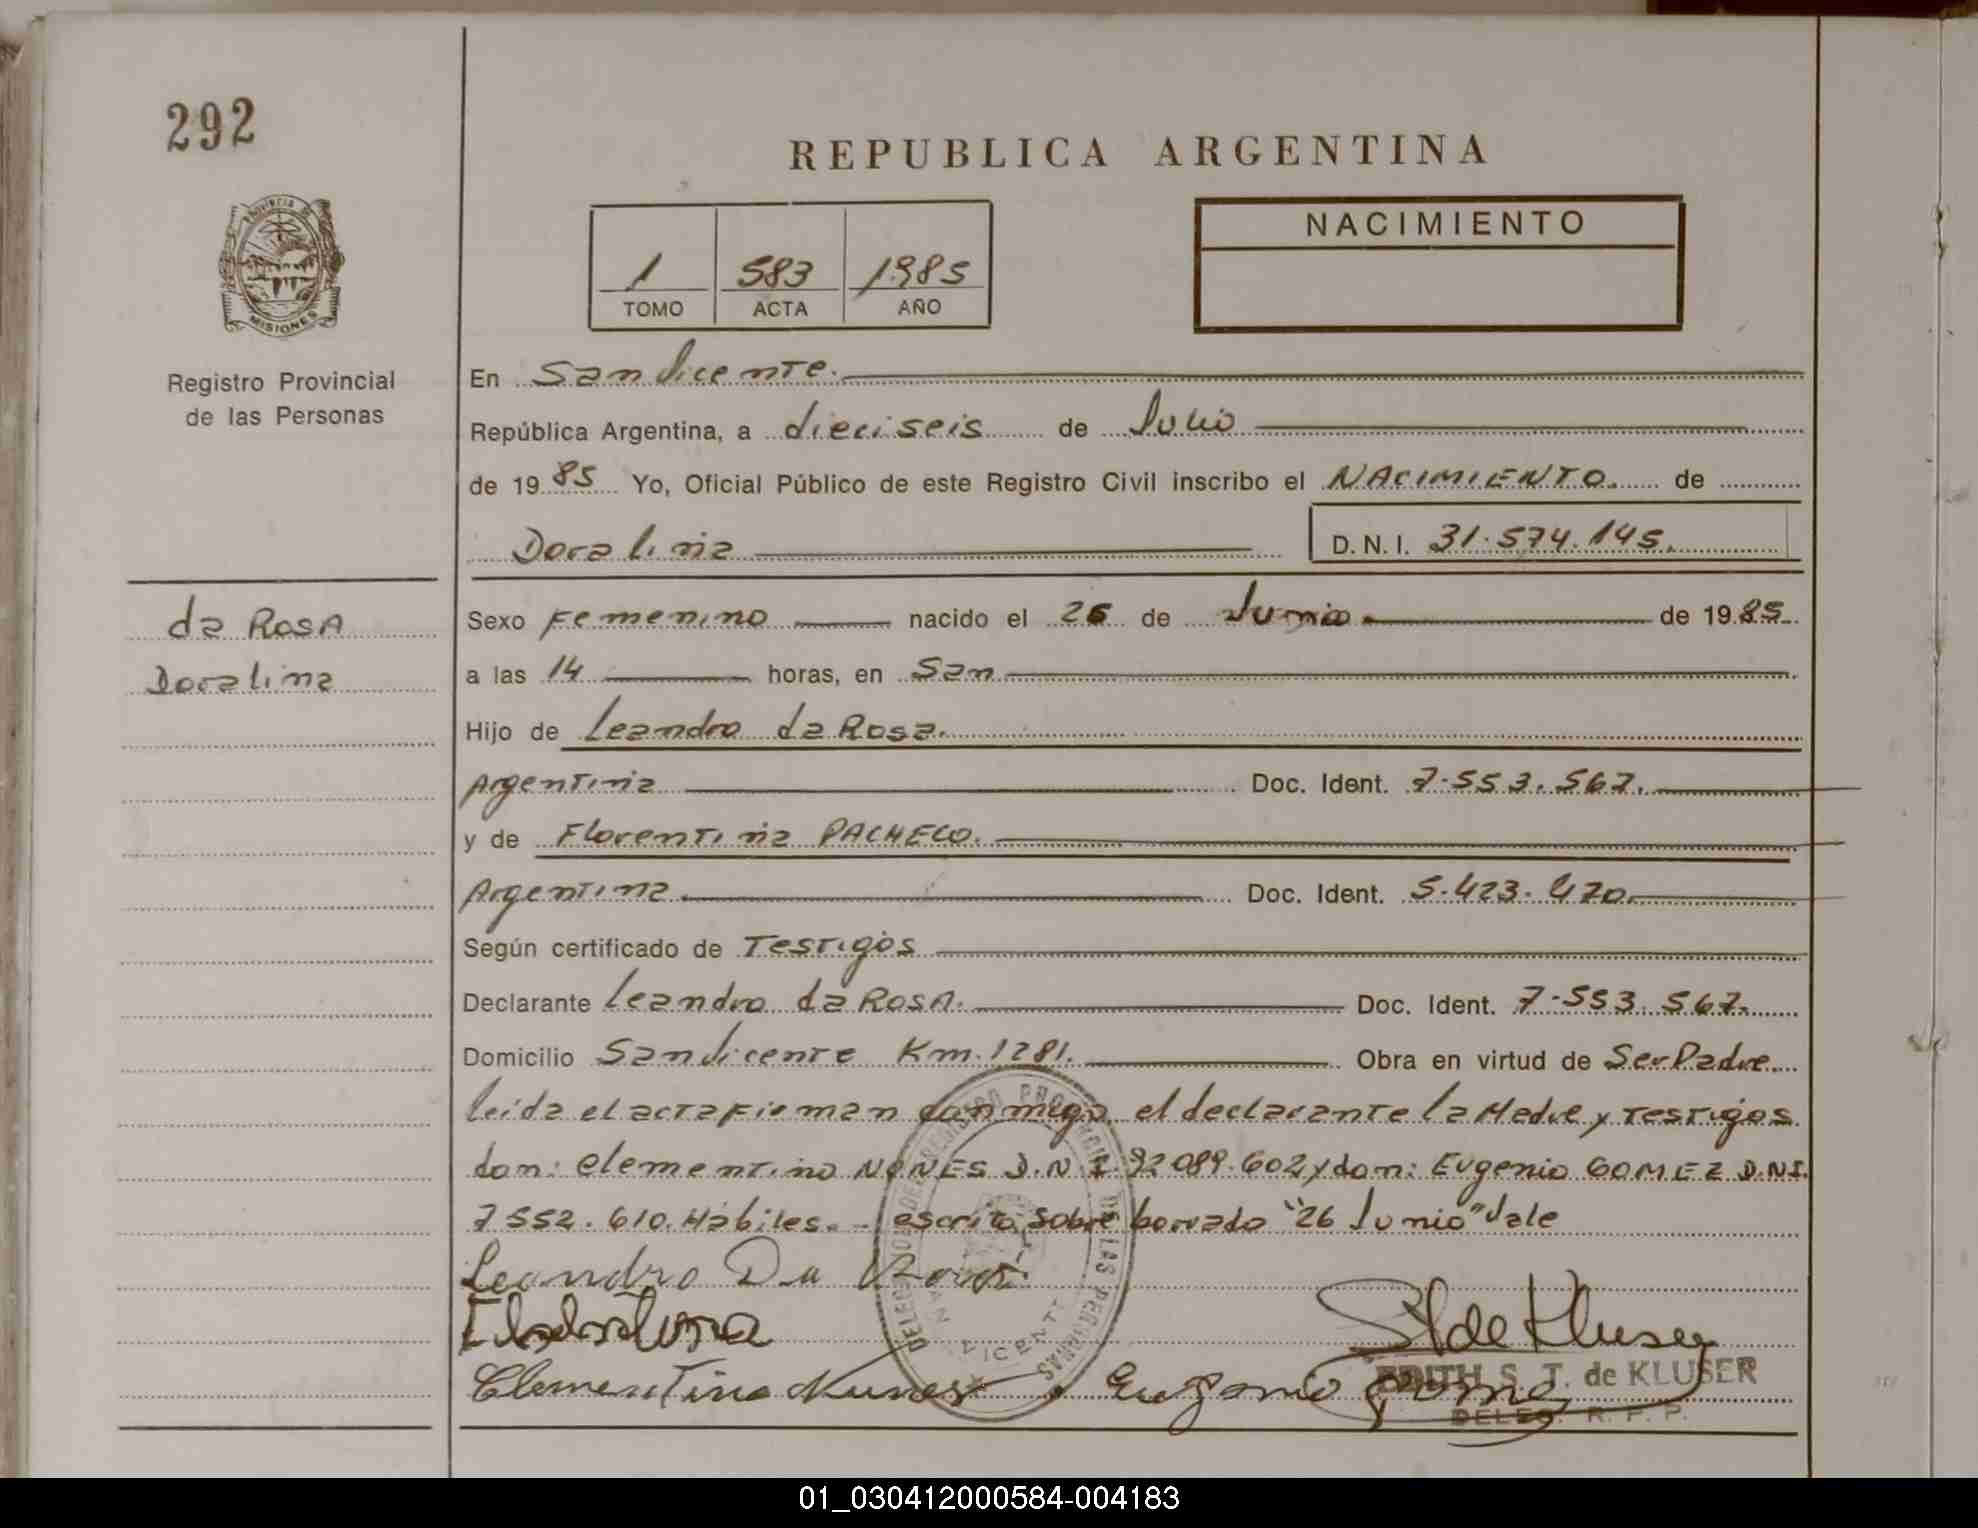 292
REPUBLICA ARGENTINA
PROVINCIA DE
MISIONES
Registro Provincial
de las Personas
1 583 1985
TOMO ACTA AÑO
NACIMIENTO
En San Vicente.
República Argentina, a dieciseis de Julio
de 19 85 Yo, Oficial Público de este Registro Civil inscribo el NACIMIENTO. de
Doralina D.N.I. 31.574.145.
da ROSA
Doralina
Sexo Femenino nacido el 26 de Junio de 19 85.
a las 14 horas, en San
Hijo de Leandro da Rosa.
Argentina Doc. Ident. 7.553.567.
y de Florentina PACHECO.
Argentina Doc. Ident. 5.423.470.
Según certificado de Testigos
Declarante Leandro da ROSA. Doc. Ident. 7.553.567.
Domicilio San Vicente Km. 1281. Obra en virtud de Ser Padre.
leida el acta firman conmigo el declarante la Madre y testigos
don: Clementino NONES D.N.I. 92089.602 y don: Eugenio GOMEZ D.N.I.
7552.610. Habiles. - escrito sobre borrado "26 Junio" Vale
Leandro Da Rosa
Clementino Nunes Eugenio
DELEGACION DEL REGISTRO PROVINCIAL DE LAS PERSONAS
SAN VICENTE
S T de Kluser
EDITH S. T. de KLUSER
DELEG. R. P. P.
01_030412000584-004183